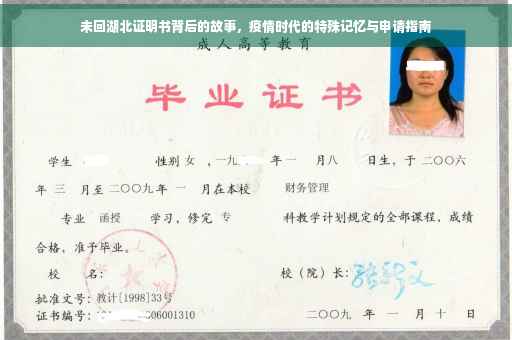 未回湖北证明书背后的故事，疫情时代的特殊记忆与申请指南
成人高等教育
毕业证书
学生 性别 女 ，一九 年 一 月八 日生，于 二〇〇六
年 三 月至 二〇〇九 年 一 月在本校 财务管理
专业 函授 学习，修完 专 科教学计划规定的全部课程，成绩
合格，准予毕业。
校 名： 校（院）长：
批准文号：教计[1998]33号
证书编号： 06001310 二〇〇九 年 一 月 十 日